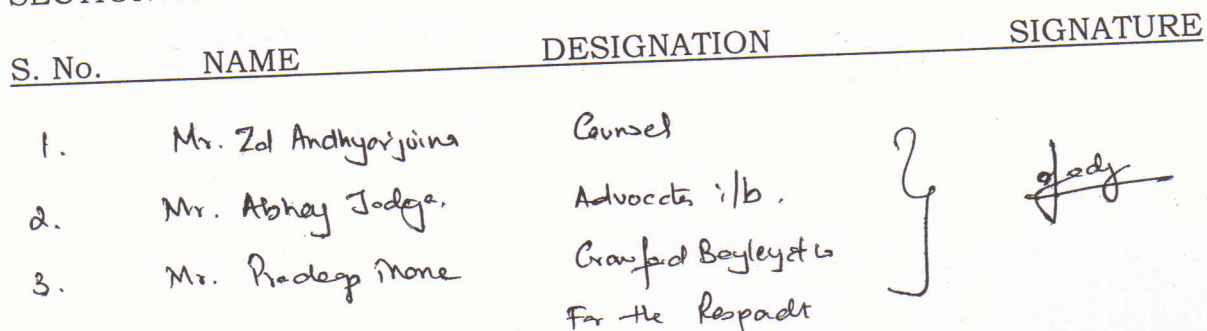 S. No. NAME DESIGNATION SIGNATURE
1. Mr. Zal Andhyarjuina Counsel
2. Mr. Abhay Jadeja. Advocates i/b.
3. Mr. Pradeep Mone Crawford Bayley & Co
For the Respondt